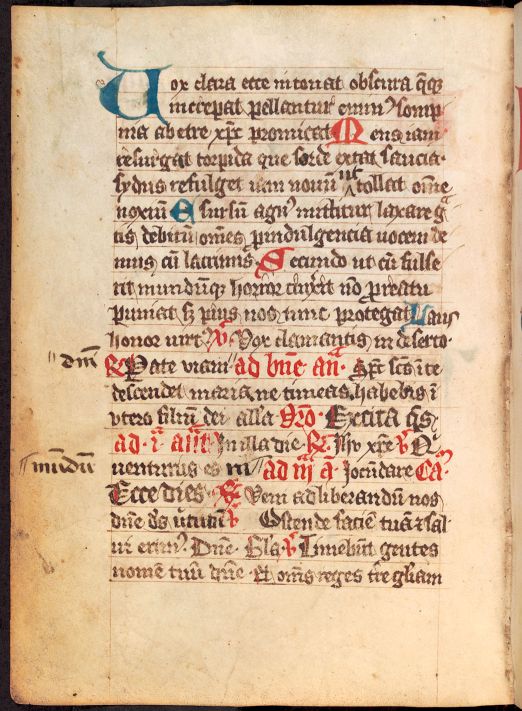 Uox clara ecce intonat obscura q̄q̄
increpat pellantur emin' somp
nia ab etre xp̄c promicat Mens iam
resurgat torpida que sorde extat saucia
sydus refulget iam nouū ut tollat om̄e
noxiū E sursū agn' mittitur laxare g
tis debitū om̄es p indulgencia uocem de
mus cū lacrimis Secundo ut cū fulse
rit mundūq horror cinxit nō p reatu
puniat s; pius nos tunc protegat Laus
honor uirt V̄ Vox clamantis in deserto
dn̄i R Parate uiam ad bn̄c an̄ Sp̄c scs̄ i te
descendet maria ne timeas habebis ī
utero filiū dei alla Oro Excita q̄s
ad i a In illa die R Ihu xp̄e V Q
mūdū uenturus es ad iij a Iocundare CA
Ecce dies R Veni ad liberandū nos
dn̄e ds̄ uirtutū V Ostende faciē tuā ⁊ sal
ui erim' Dn̄e Gla V Timebūt gentes
nomē tuū dn̄e Et om̄s reges tr̄e gl̄iam